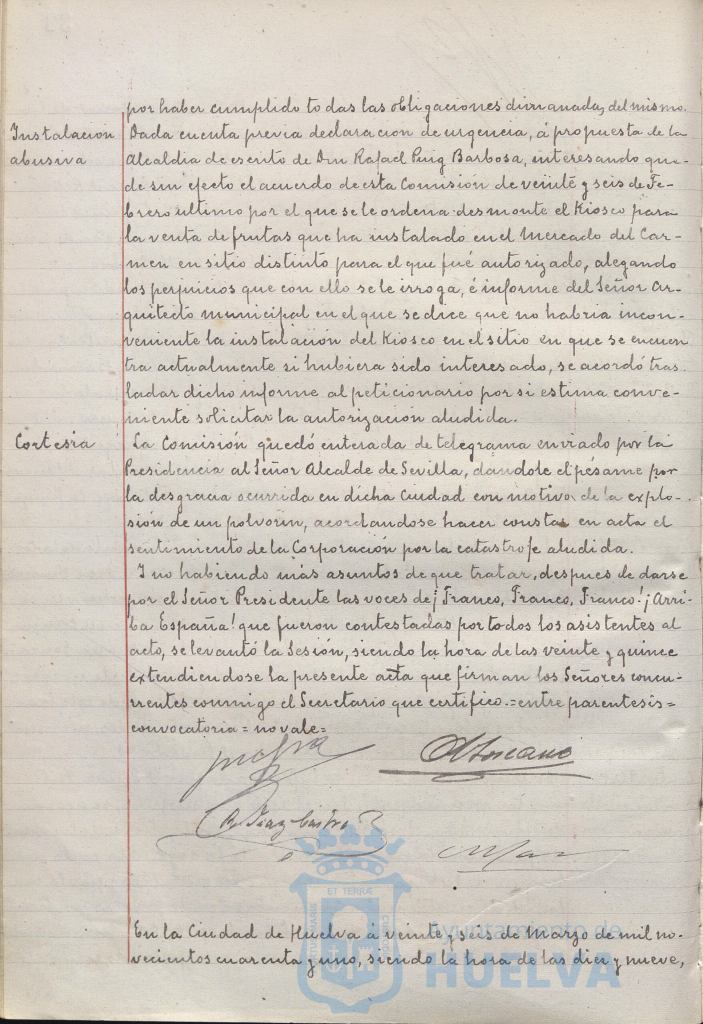 por haber cumplido todas las obligaciones dimanadas del mismo.
Instalacion
abusiva
Dada cuenta previa declaracion de urgencia, á propuesta de la
Alcaldia de escrito de Don Rafael Puig Barbosa, interesando que-
de sin efecto el acuerdo de esta Comisión de veinte y seis de Fe-
brero ultimo por el que se le ordena desmonte el Kiosco para
la venta de frutas que ha instalado en el Mercado del Car-
men en sitio distinto para el que fué autorizado, alegando
los perjuicios que con ello se le irroga, é informe del Señor Ar-
quitecto municipal en el que se dice que no habria incon-
veniente la instalación del Kiosco en el sitio en que se encuen
tra actualmente si hubiera sido interesado, se acordó tras-
ladar dicho informe al peticionario por si estima conve-
niente solicitar la autorización aludida.
Cortesia
La Comisión quedó enterada de telegrama enviado por la
Presidencia al Señor Alcalde de Sevilla, dandole el pésame por
la desgracia ocurrida en dicha Ciudad con motivo de la explo-
sión de un polvorin, acordandose hacer constar en acta el
sentimiento de la Corporación por la catastrofe aludida.
Y no habiendo más asuntos de que tratar, despues de darse
por el Señor Presidente las voces de ¡Franco, Franco, Franco! ¡Arri-
ba España! que fueron contestadas por todos los asistentes al
acto, se levantó la Sesión, siendo la hora de las veinte y quince
extendiendose la presente acta que firman los Señores concu-
rrentes conmigo el Secretario que certifico.=entre parentesis=
convocatoria=no vale=
R. Diaz Castro
ET TERRÆ
En la Ciudad de Huelva á veinte y seis de Marzo de mil no-
vecientos cuarenta y uno, siendo la hora de las diez y nueve,
Ayuntamiento de
HUELVA